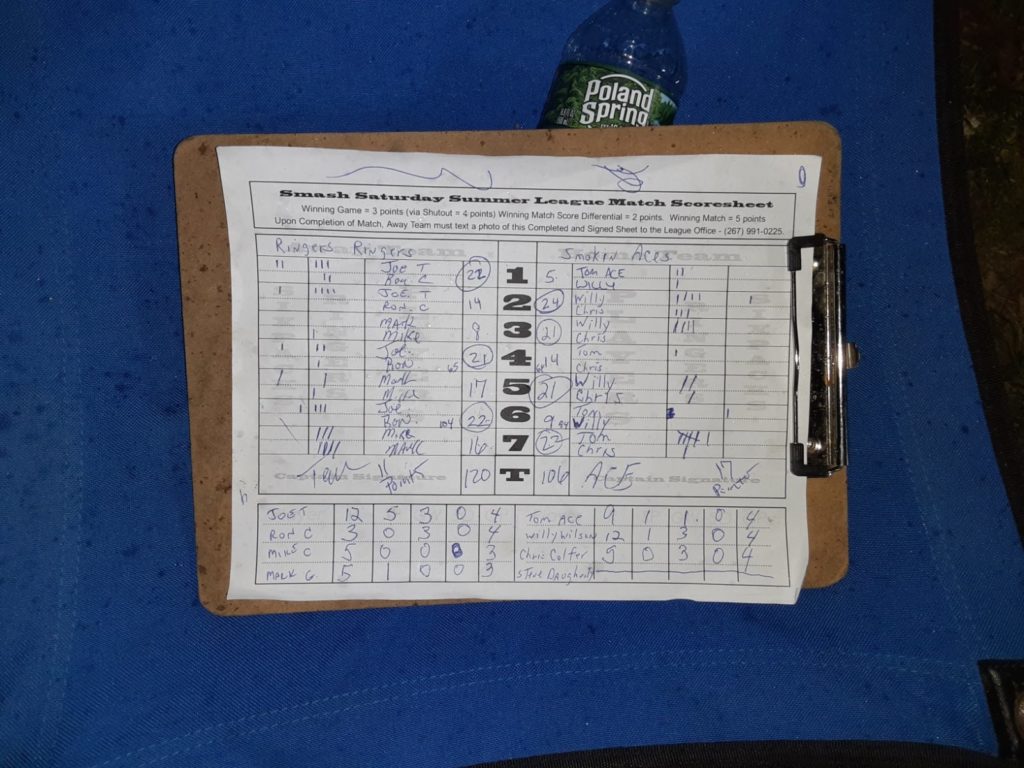 Poland
Spring
Smash Saturday Summer League Match Scoresheet
Winning Game = 3 points (via Shutout = 4 points) Winning Match Score Differential = 2 points. Winning Match = 5 points
Upon Completion of Match, Away Team must text a photo of this Completed and Signed Sheet to the League Office - (267) 991-0225.
Ringers Ringers Smokin Aces
Joe T 22 1 5 Tom ACE
Ron C Willy
JOE T 14 2 24 Willy
RON. C Chris
MARK 8 3 21 Willy
MIKE Chris
Joe 21 4 14 Tom
RON 65 Chris
Mark 17 5 21 Willy
Mike Chris
Joe 22 6 9 Tom
RON. 104 Willy
MIKE 16 7 22 Tom
MARK Chris
Captain Signature 11 Point 120 T 106 ACE Captain Signature 17
JOE T 12 5 3 0 4 Tom ACE 9 1 1 0 4
RON C 3 0 3 0 4 Willy Wilson 12 1 3 0 4
MIKE C 5 0 0 3 Chris Colfer 9 0 3 0 4
MARK G 5 1 0 0 3 Steve Daugherty